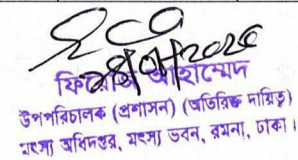 ফিরোজ আহাম্মেদ
উপপরিচালক (প্রশাসন) (অতিরিক্ত দায়িত্ব)
মৎস্য অধিদপ্তর, মৎস্য ভবন, রমনা, ঢাকা।